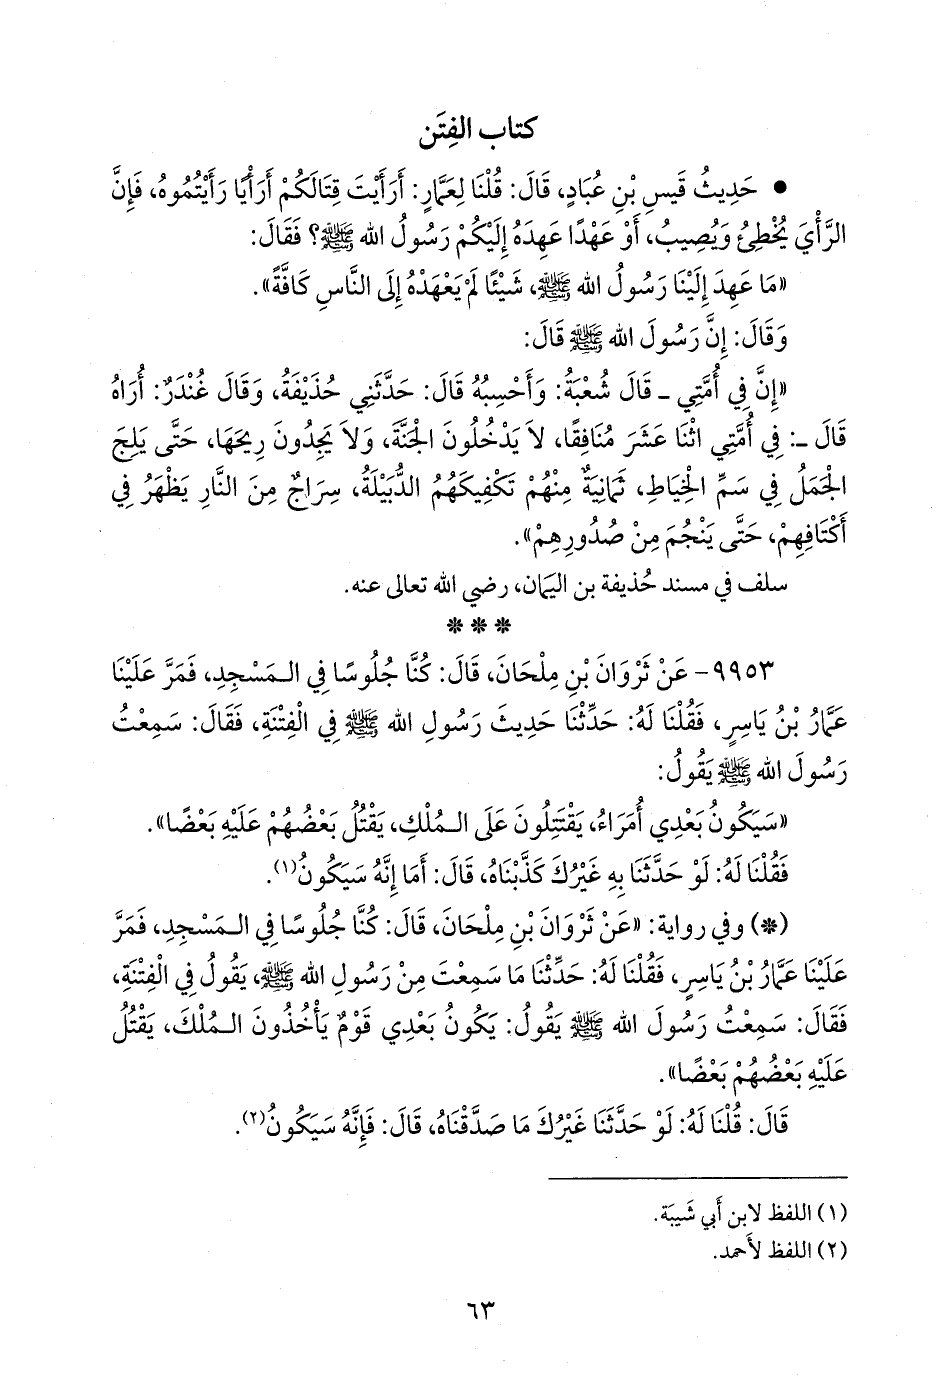 كتاب الفِتَن
• حَدِيثُ قَيْسِ بْنِ عُبَادٍ، قَالَ: قُلْنَا لِعَمَّارٍ: أَرَأَيْتَ قِتَالَكُمْ أَرَأْيًا رَأَيْتُمُوهُ، فَإِنَّ
الرَّأْيَ يُخْطِئُ وَيُصِيبُ، أَوْ عَهْدًا عَهِدَهُ إِلَيْكُمْ رَسُولُ الله ﷺ؟ فَقَالَ:
«مَا عَهِدَ إِلَيْنَا رَسُولُ الله ﷺ، شَيْئًا لَمْ يَعْهَدْهُ إِلَى النَّاسِ كَافَّةً».
وَقَالَ: إِنَّ رَسُولَ الله ﷺ قَالَ:
«إِنَّ فِي أُمَّتِي ـ قَالَ شُعْبَةُ: وَأَحْسِبُهُ قَالَ: حَدَّثَنِي حُذَيْفَةُ، وَقَالَ غُنْدَرٌ: أُرَاهُ
قَالَ ـ: فِي أُمَّتِي اثْنَا عَشَرَ مُنَافِقًا، لاَ يَدْخُلُونَ الْجَنَّةَ، وَلاَ يَجِدُونَ رِيحَهَا، حَتَّى يَلِجَ
الْجَمَلُ فِي سَمِّ الْخِيَاطِ، ثَمَانِيَةٌ مِنْهُمْ تَكْفِيكَهُمُ الدُّبَيْلَةُ، سِرَاجٌ مِنَ النَّارِ يَظْهَرُ فِي
أَكْتَافِهِمْ، حَتَّى يَنْجُمَ مِنْ صُدُورِهِمْ».
سلف في مسند حُذيفة بن اليمان، رضي الله تعالى عنه.
* * *
٩٩٥٣- عَنْ ثَرْوَانَ بْنِ مِلْحَانَ، قَالَ: كُنَّا جُلُوسًا فِي الـمَسْجِدِ، فَمَرَّ عَلَيْنَا
عَمَّارُ بْنُ يَاسِرٍ، فَقُلْنَا لَهُ: حَدِّثْنَا حَدِيثَ رَسُولِ الله ﷺ فِي الْفِتْنَةِ، فَقَالَ: سَمِعْتُ
رَسُولَ الله ﷺ يَقُولُ:
«سَيَكُونُ بَعْدِي أُمَرَاءُ، يَقْتَتِلُونَ عَلَى الـمُلْكِ، يَقْتُلُ بَعْضُهُمْ عَلَيْهِ بَعْضًا».
فَقُلْنَا لَهُ: لَوْ حَدَّثَنَا بِهِ غَيْرُكَ كَذَّبْنَاهُ، قَالَ: أَمَا إِنَّهُ سَيَكُونُ(١).
(*) وفي رواية: «عَنْ ثَرْوَانَ بْنِ مِلْحَانَ، قَالَ: كُنَّا جُلُوسًا فِي الـمَسْجِدِ، فَمَرَّ
عَلَيْنَا عَمَّارُ بْنُ يَاسِرٍ، فَقُلْنَا لَهُ: حَدِّثْنَا مَا سَمِعْتَ مِنْ رَسُولِ الله ﷺ، يَقُولُ فِي الْفِتْنَةِ،
فَقَالَ: سَمِعْتُ رَسُولَ الله ﷺ يَقُولُ: يَكُونُ بَعْدِي قَوْمٌ يَأْخُذُونَ الـمُلْكَ، يَقْتُلُ
عَلَيْهِ بَعْضُهُمْ بَعْضًا».
قَالَ: قُلْنَا لَهُ: لَوْ حَدَّثَنَا غَيْرُكَ مَا صَدَّقْنَاهُ، قَالَ: فَإِنَّهُ سَيَكُونُ(٢).
(١) اللفظ لابن أَبي شَيبَة.
(٢) اللفظ لأَحمد.
٦٣